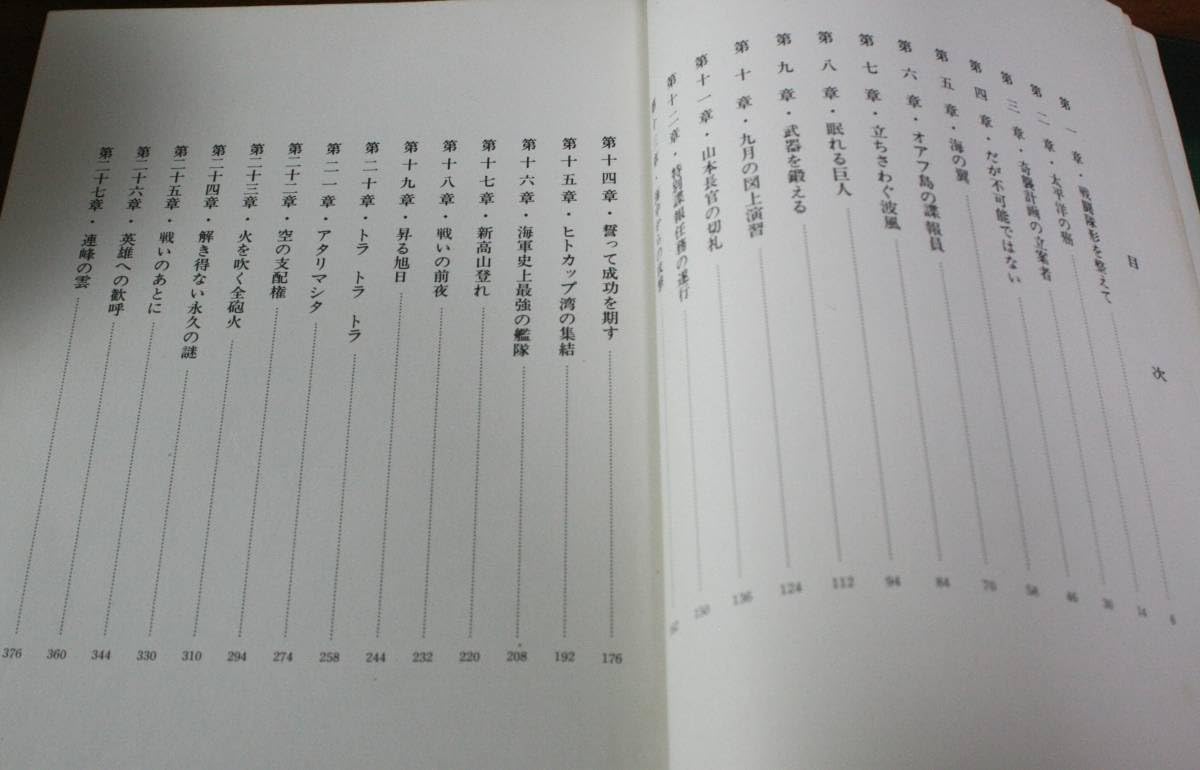 目次
第一章・戦闘隊形を整えて 6
第二章・太平洋の 14
第三章・奇襲計画の立案者 30
第四章・だが不可能ではない 46
第五章・海の翼 58
第六章・オアフ島の諜報員 70
第七章・立ちさわぐ波風 84
第八章・眠れる巨人 94
第九章・武器を鍛える 112
第十章・九月の図上演習 124
第十一章・山本長官の切札 136
第十二章・特別諜報任務の遂行 150
第十四章・誓って成功を期す 176
第十五章・ヒトカップ湾の集結 192
第十六章・海軍史上最強の艦隊 208
第十七章・新高山登れ 220
第十八章・戦いの前夜 232
第十九章・昇る旭日 244
第二十章・トラ トラ トラ 258
第二一章・アタリマシタ 274
第二十二章・空の支配権 294
第二十三章・火を吹く全砲火 310
第二十四章・解き得ない永久の謎 330
第二十五章・戦いのあとに 344
第二十六章・英雄への歓呼 360
第二十七章・連峰の雲 376